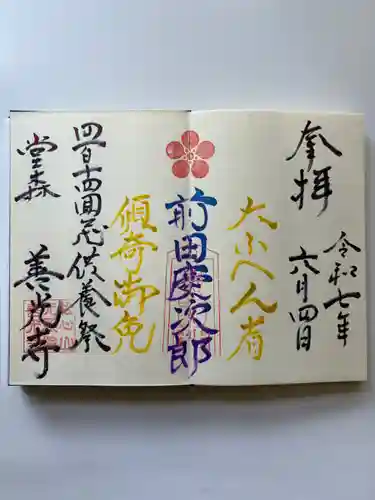 奉拝
令和七年
六月四日
大ふへん者
前田慶次郎
傾奇御免
四百十四回忌供養祭
堂森 善光寺